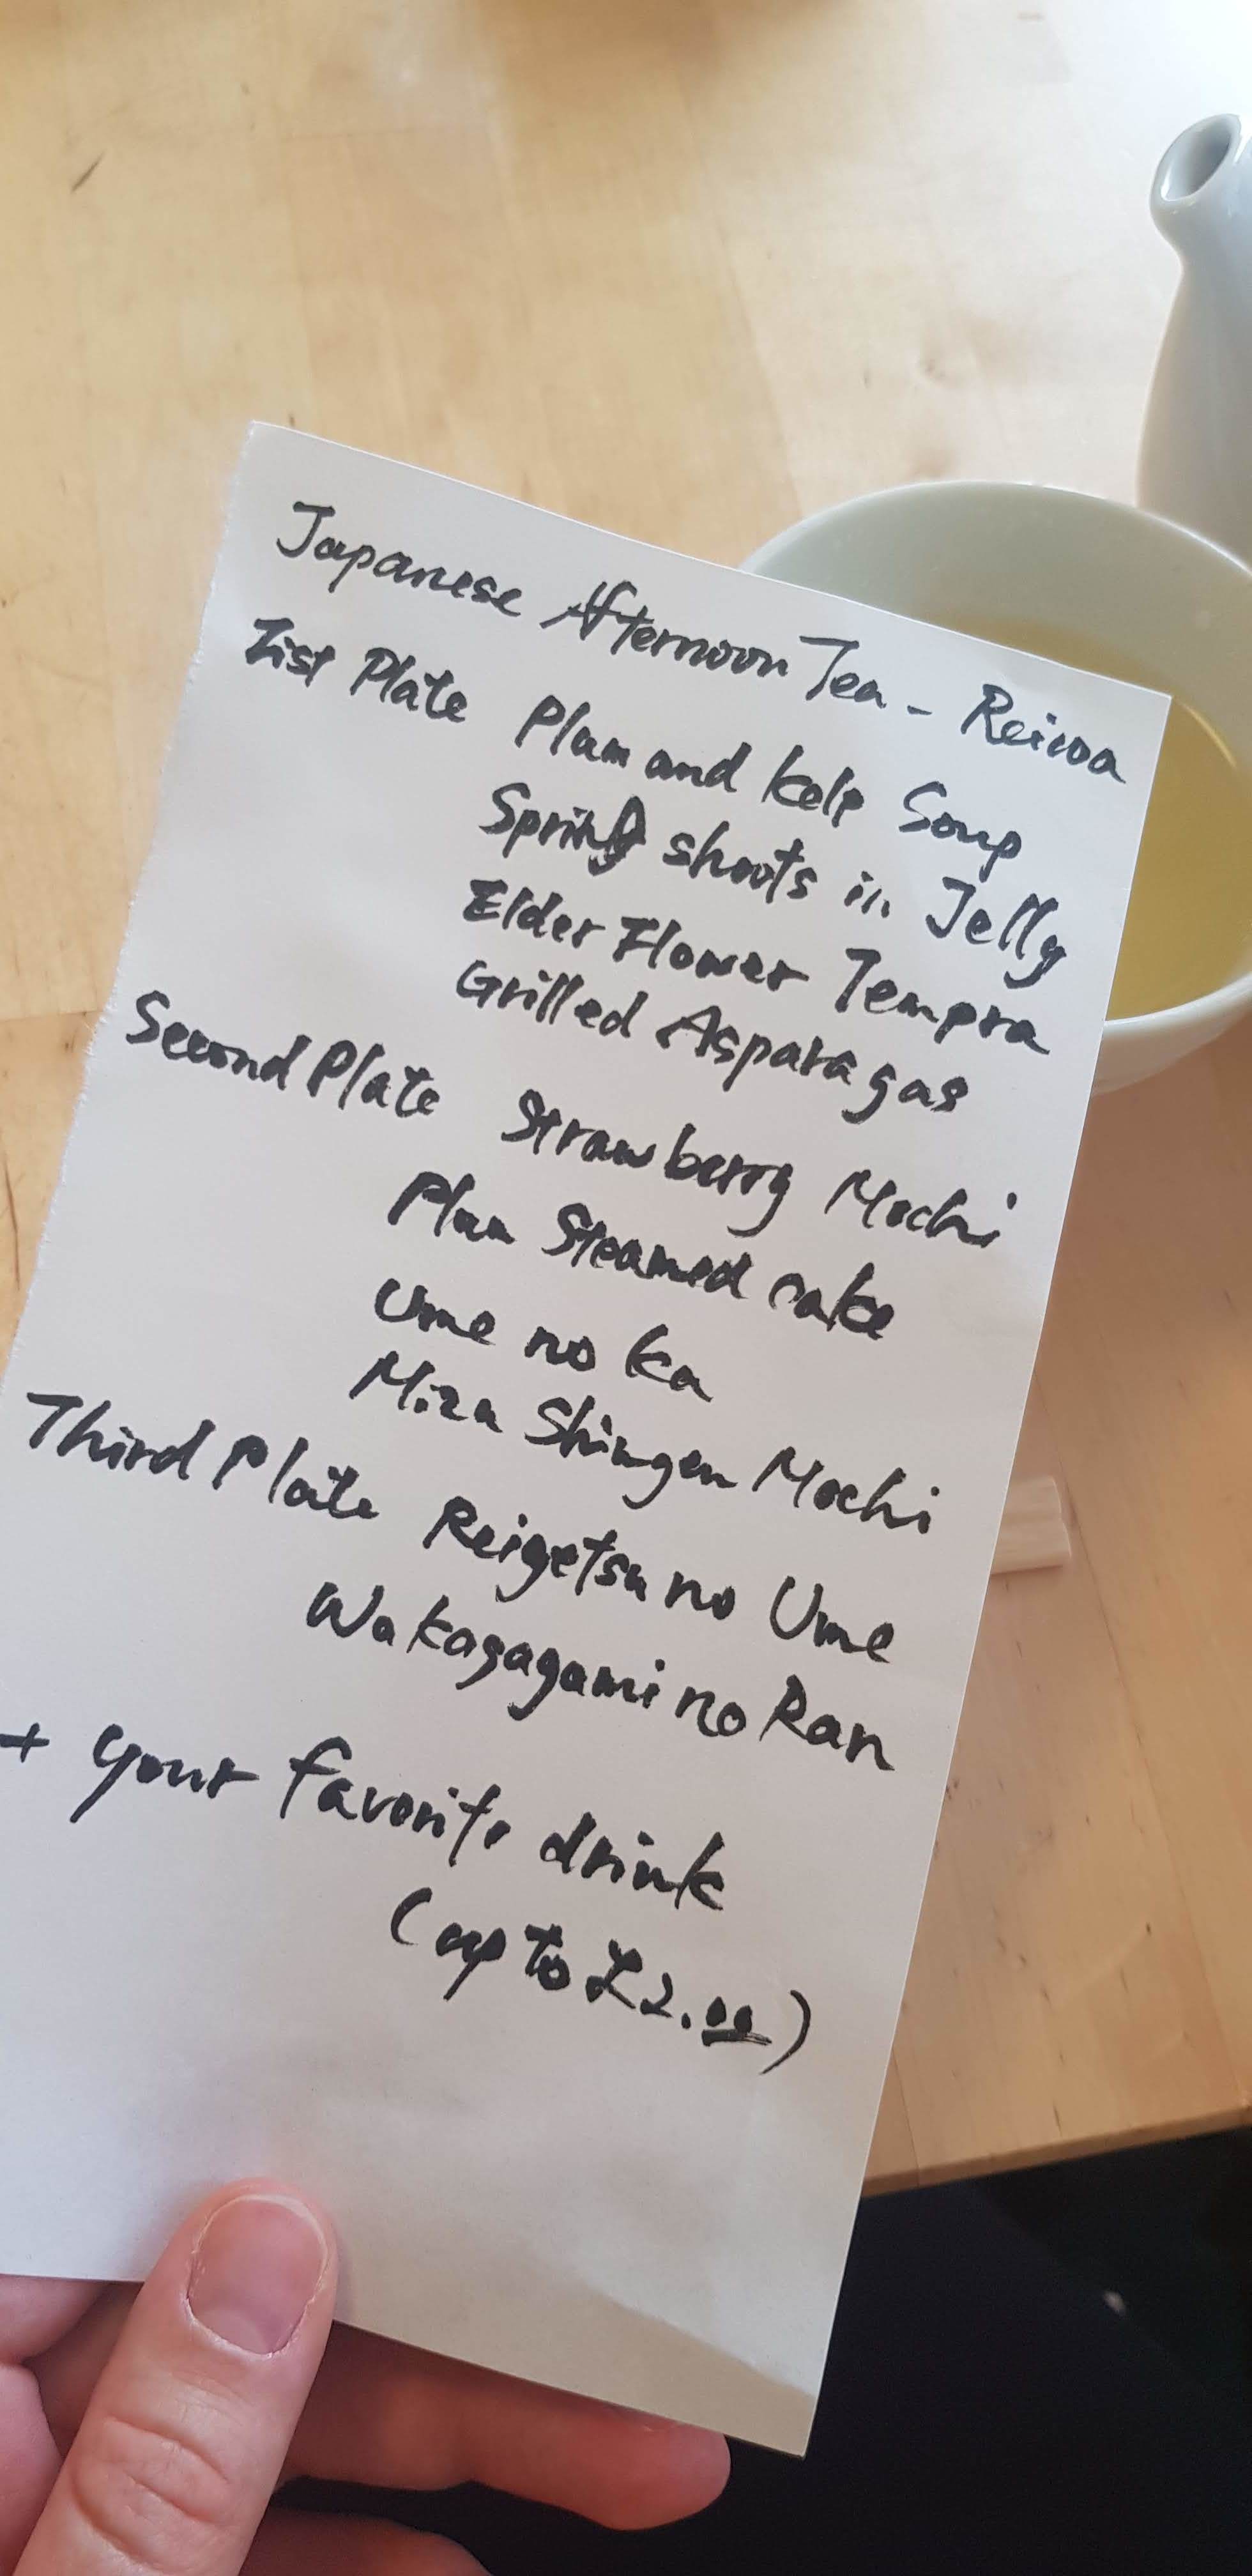 Japanese Afternoon Tea - Reiwa
First Plate Plum and Kelp Soup
Spring shoots in Jelly
Elder Flower Tempra
Grilled Asparagas
Second Plate Strawberry Mochi
Plum Steamed cake
Ume no ka
Mizu Shingen Mochi
Third Plate Reigetsu no Ume
Wakagagami no Ran
+ your favorite drink
(up to £2.00)